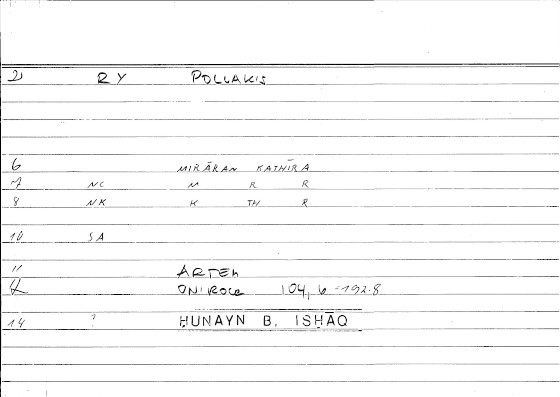 2) RY POLLAKIS
6 MIRĀRAN KATHĪRA
7 NC M R R
8 NK K TH R
10 SA
11 ARTEM
ONIROCR 104, 6 - 192.8
14 ? HUNAYN B. ISḤĀQ